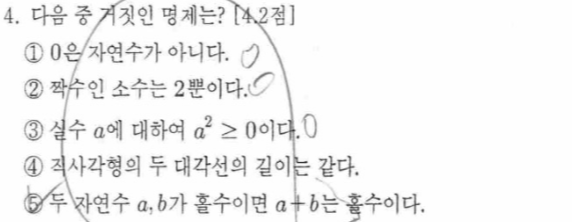 4. 다음 중 거짓인 명제는? [4.2점]
① 0은 자연수가 아니다.
② 짝수인 소수는 2뿐이다.
③ 실수 a에 대하여 a² ≥ 0이다.
④ 직사각형의 두 대각선의 길이는 같다.
⑤ 두 자연수 a, b가 홀수이면 a+b는 홀수이다.